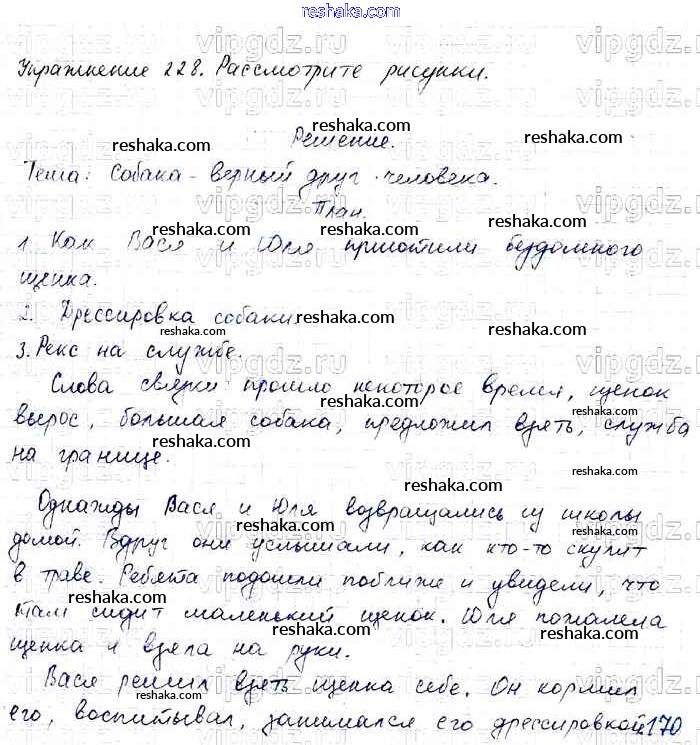 reshaka.com
Упражнение 228. Рассмотрите рисунки.
Решение.
Тема: Собака - верный друг человека.
План.
1. Как Вася и Юля приютили бездомного
щенка.
2. Дрессировка собаки.
3. Рекс на службе.
Слова связки: прошло некоторое время, щенок
вырос, большая собака, предложил взять, служба
на границе.
Однажды Вася и Юля возвращались из школы
домой. Вдруг они услышали, как кто-то скулит
в траве. Ребята подошли поближе и увидели, что
там сидит маленький щенок. Юля пожалела
щенка и взяла на руки.
Вася решил взять щенка себе. Он кормил
его, воспитывал, занимался его дрессировкой.
170